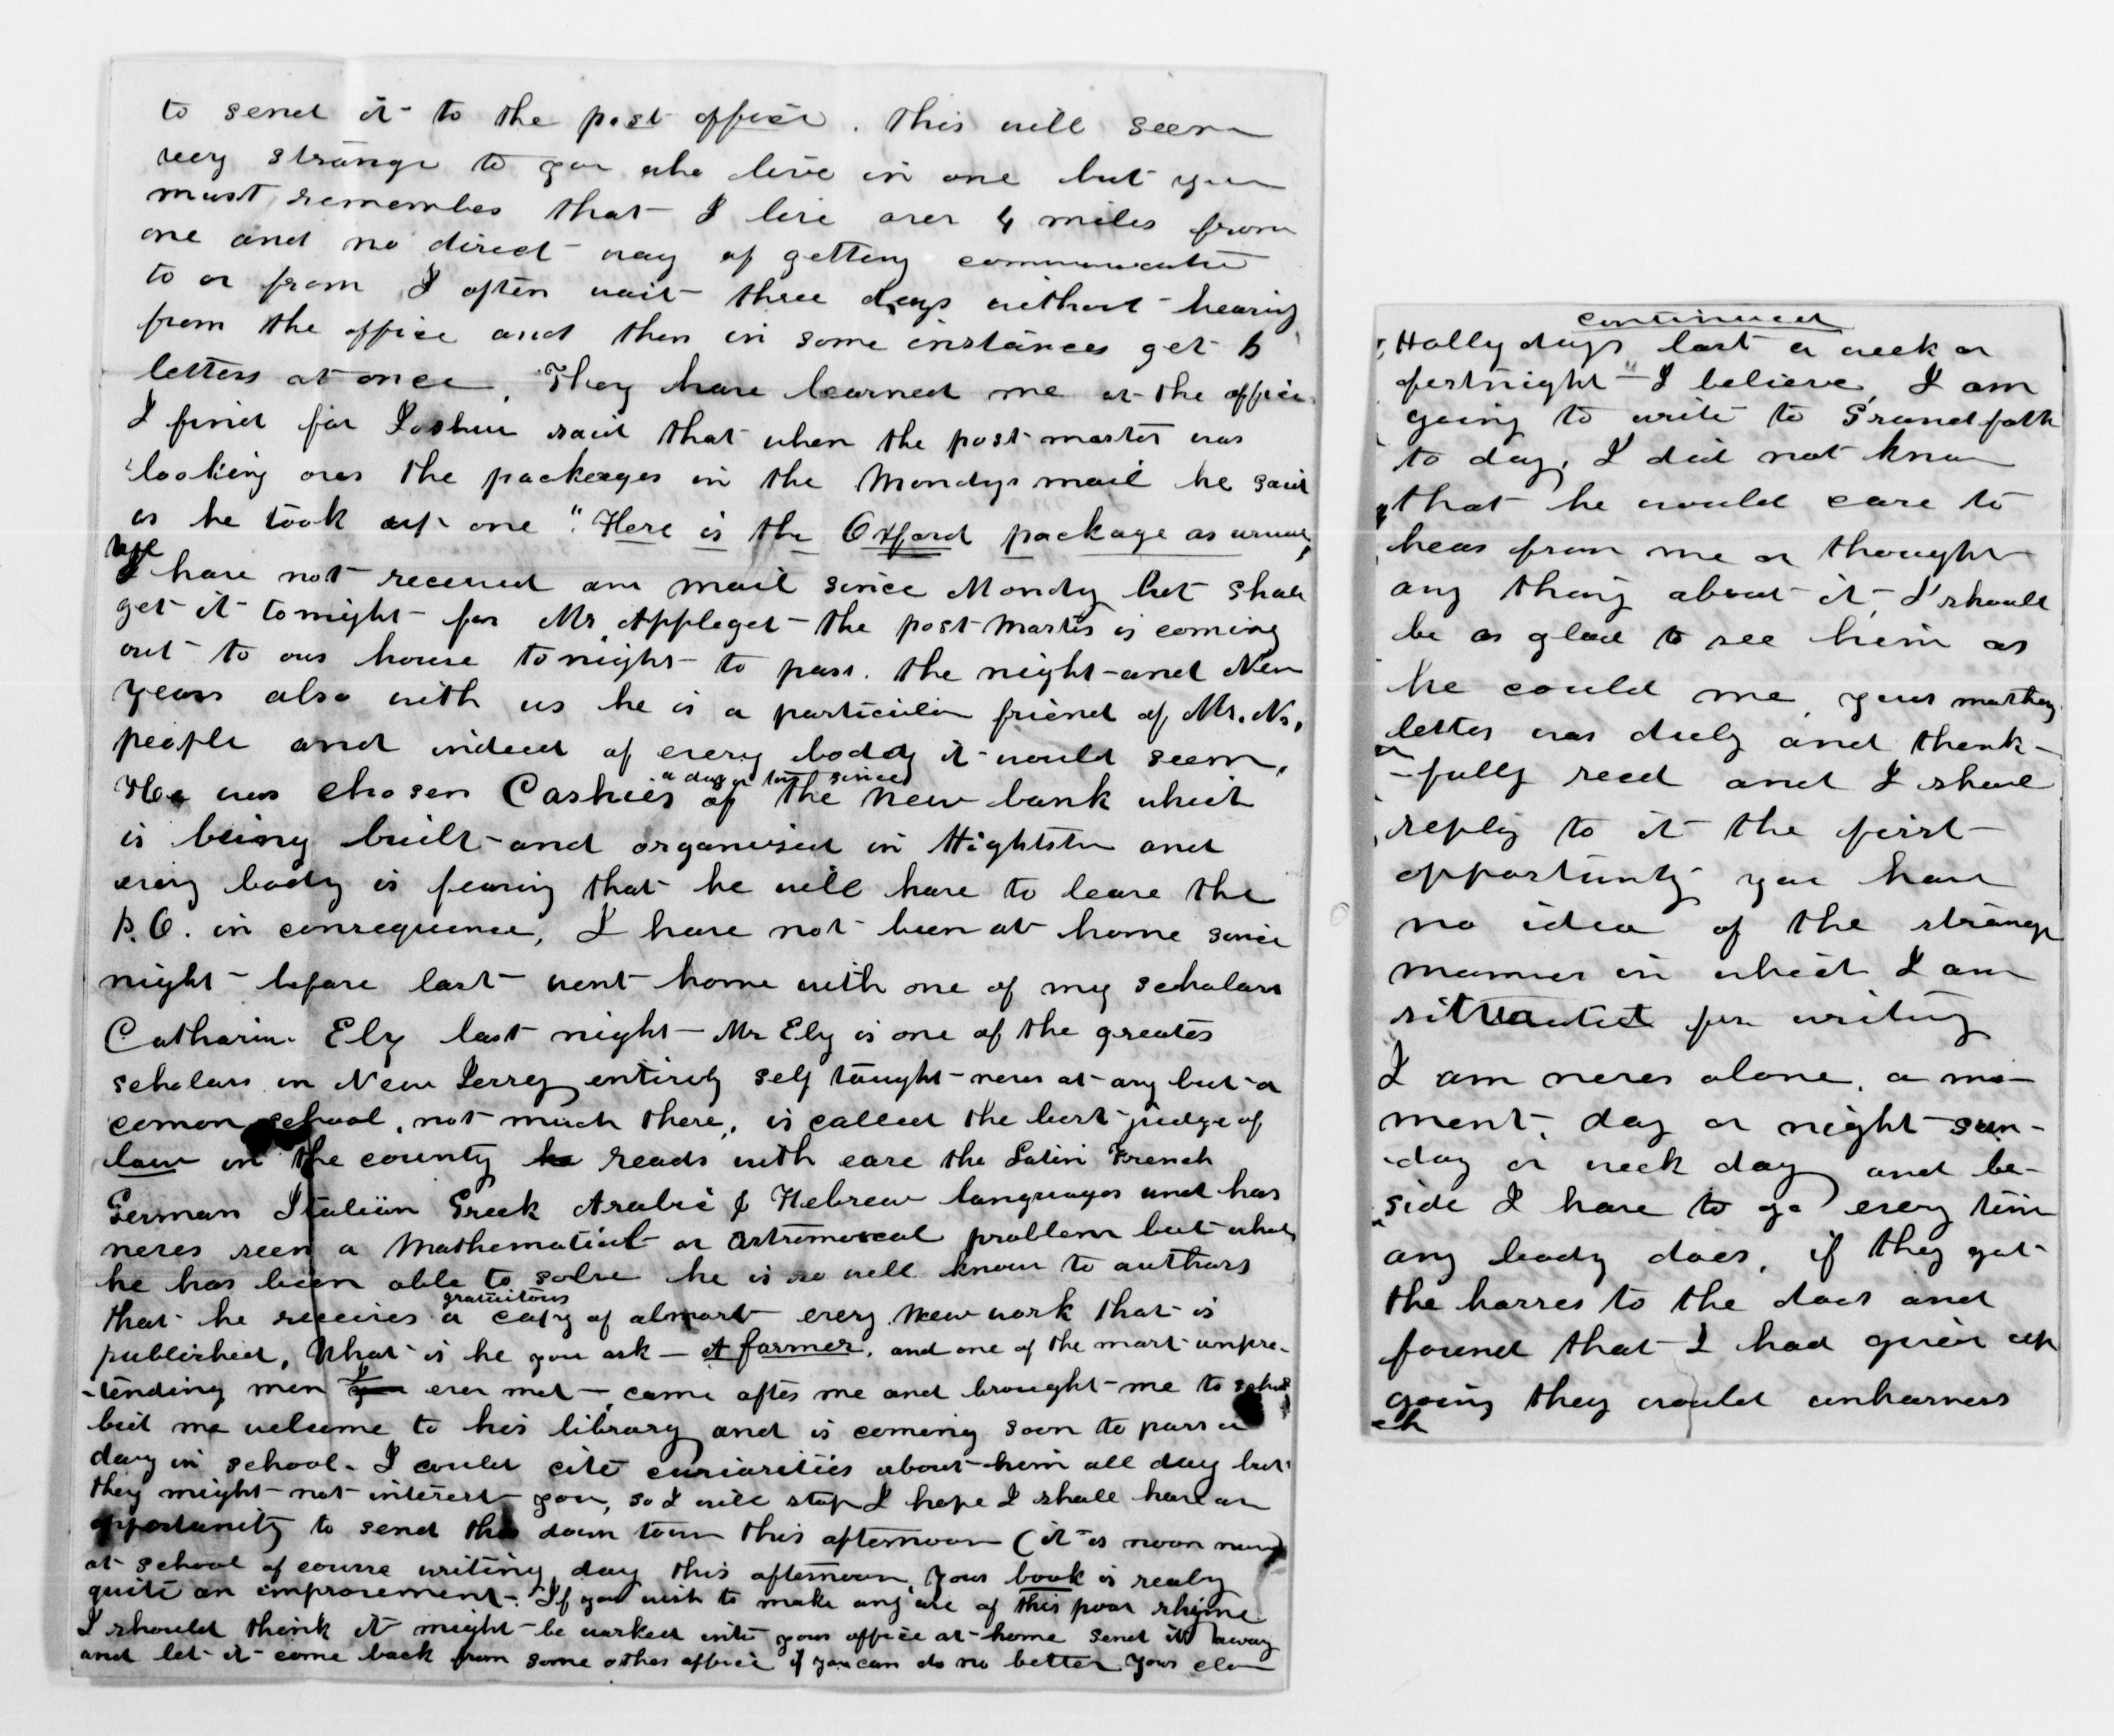 to send it to the post office. this will seem
very strange to you who live in one but you
must remember that I live over 4 miles from
one and no direct way of getting
to or from I often wait three days without hearing
from the office and then in some instances get 6
letters at once. They have learned me at the office
I find for Joshua said that when the post master was
looking over the packages in the Mondys mail he said
as he took up one "Here is the Oxford package as usual,
I have not received our mail since Mondy but shall
get it tonight for Mr. Appleget the post Master is coming
out to our house tonight to pass. the night and New
years also with us he is a particular friend of Mr. Ns,
people and indeed of every boddy it would seem,
a day or two since
He was chosen Cashier of the new bank which
is being built and organised in Hightstn and
every body is fearing that he will have to leave the
P.O. in consequence, I have not been at home since
night before last went home with one of my scholars
Catharin Ely last night Mr Ely is one of the greates
scholars in New Jersey entirely self taught never at any but a
comon school, not much there, is called the best judge of
law in the county he reads with ease the Latin French
German Italian Greek Arabic & Hebrew languages and has
never seen a Mathematical or Astronomical problem but what
he has been able to solve he is so well known to authors
gratuitous
that he receives a copy of almost every new work that is
published, What is he you ask — A farmer, and one of the most unpre-
-tending men I ever met — came after me and brought me to school
bid me welcome to his library and is coming soon to pass a
day in school. I could cite curiosities about him all day but
they might not interest you, so I will stop I hope I shall have an
opportunity to send this down town this afternoon (it is noon now)
at school of course writing day this afternoon, your book is realy
quite an improvement. If you wish to make any use of this poor rhyme
I should think it might be worked into your office at home send it away
and let it come back from some other office if you can do no better yours
continued
Holly days last a week or
fortnight I believe, I am
going to write to Grandfath
to day, I did not know
that he would care to
hear from me or thought
any thing about it, I should
be as glad to see him as
he could me, your mothers
letter was duly and thank-
-fully recd and I shall
reply to it the first
opportunity you have
no idea of the strange
manner in which I am
situated for writing
I am never alone, a mo-
ment, day or night sun-
-day or week day and be-
side I have to go every time
any body does, if they got
the horses to the door and
found that I had given up
going they would unharness